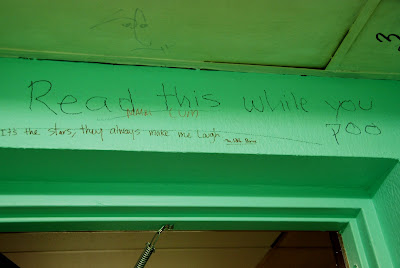 Read this while you
poo
It's the stars, they always make me laugh
3